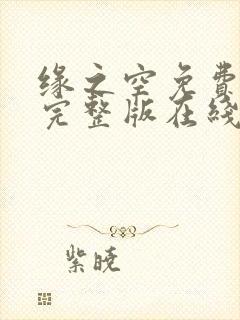 缘之空免费
完整版在线
紫晓